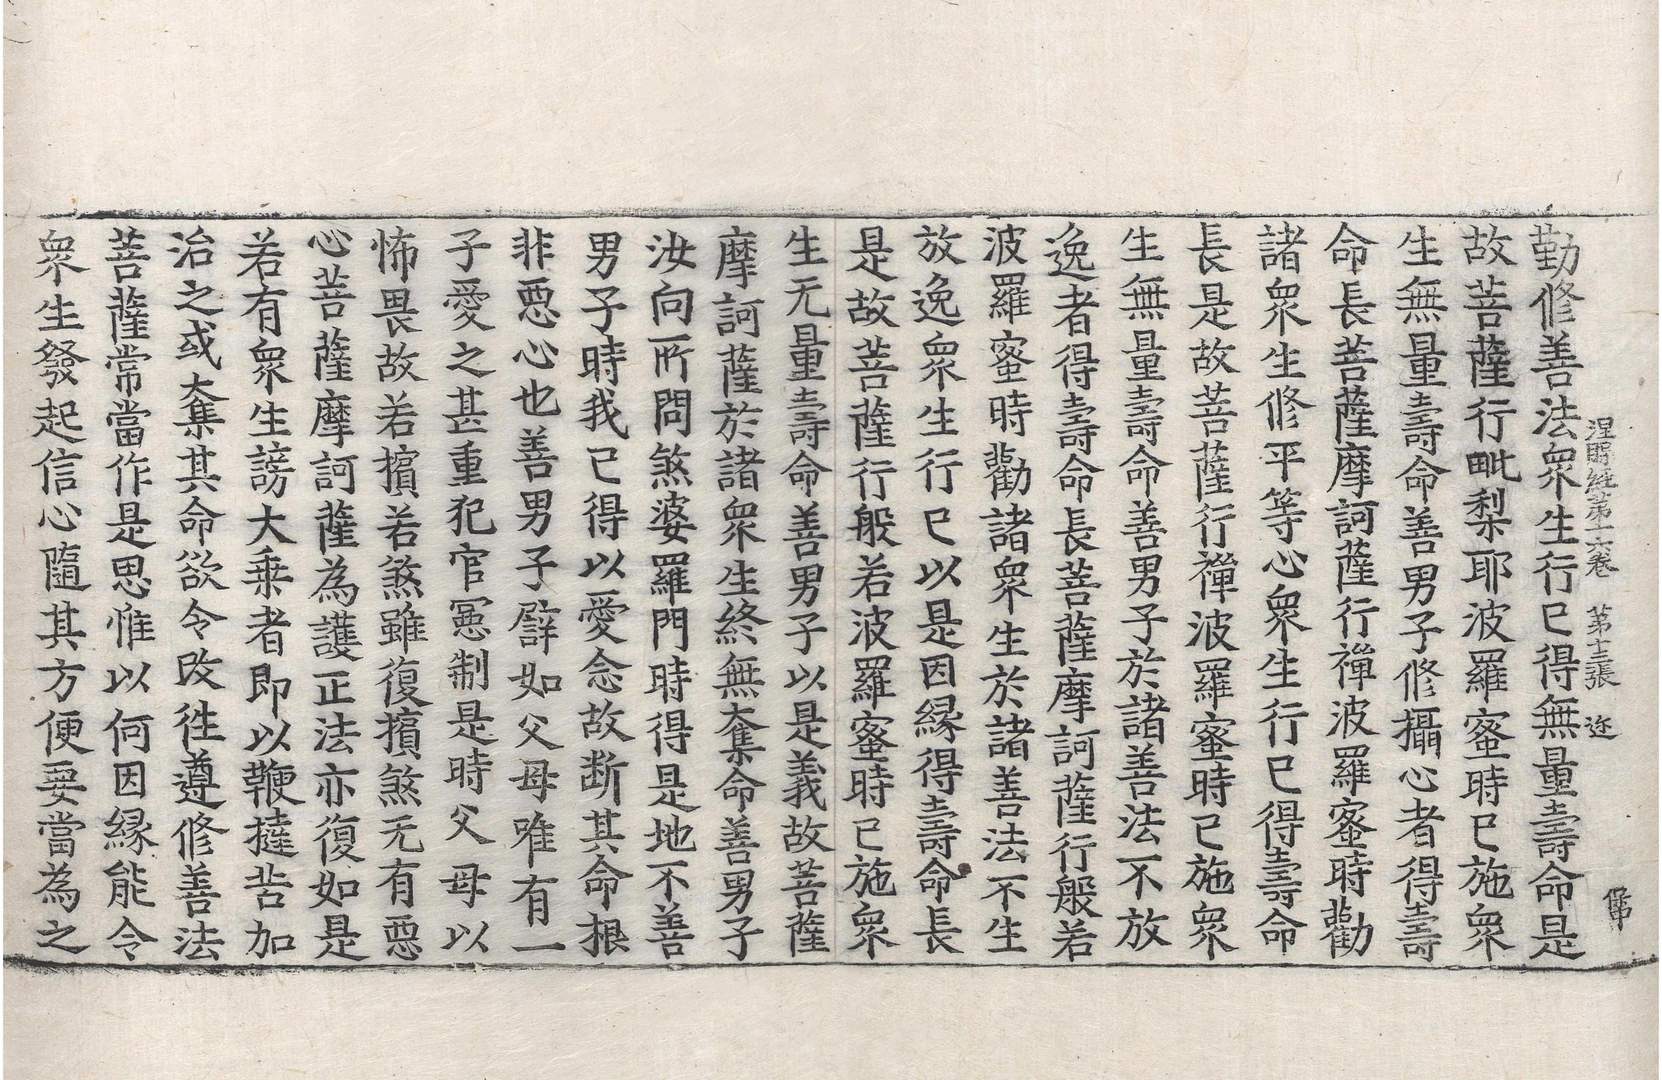 涅槃經第十六卷　第十三張　迩
勤修善法衆生行已得無量壽命是
故菩薩行毗梨耶波羅蜜時已施衆
生無量壽命善男子修攝心者得壽
命長菩薩摩訶薩行禪波羅蜜時勸
諸衆生修平等心衆生行已得壽命
長是故菩薩行禪波羅蜜時已施衆
生無量壽命善男子於諸善法不放
逸者得壽命長菩薩摩訶薩行般若
波羅蜜時勸諸衆生於諸善法不生
放逸衆生行已以是因縁得壽命長
是故菩薩行般若波羅蜜時已施衆
生无量壽命善男子以是義故菩薩
摩訶薩於諸衆生終無奪命善男子
汝向所問煞婆羅門時得是地不善
男子時我已得以愛念故断其命根
非惡心也善男子譬如父母唯有一
子愛之甚重犯官憲制是時父母以
怖畏故若擯若煞雖復擯煞无有惡
心菩薩摩訶薩為護正法亦復如是
若有衆生謗大乗者即以鞭撻苦加
治之或奪其命欲令改徃遵修善法
菩薩常當作是思惟以何因縁能令
衆生發起信心隨其方便要當為之